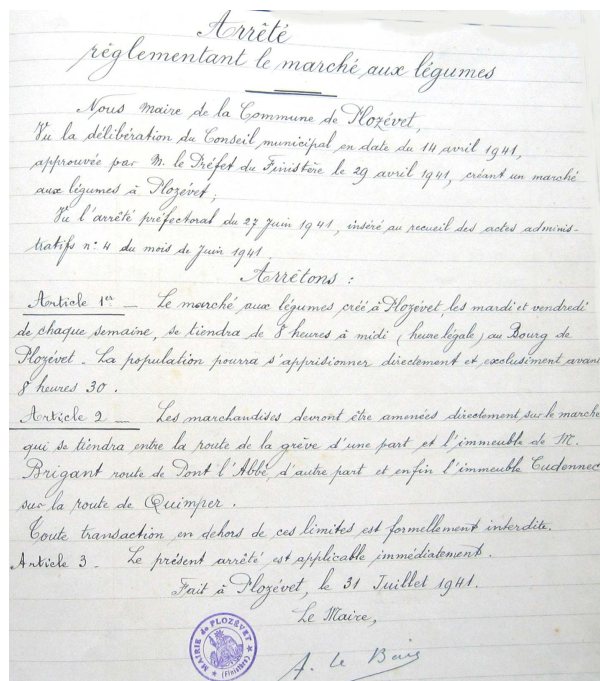 Arrêté
réglementant le marché aux légumes
Nous maire de la Commune de Plozévet,
Vu la délibération du Conseil municipal en date du 14 avril 1941,
approuvée par M. le Préfet du Finistère le 29 avril 1941, créant un marché
aux légumes à Plozévet;
Vu l'arrêté préfectoral du 27 Juin 1941, inséré au recueil des actes adminis-
tratifs n: 4 du mois de Juin 1941
Arrêtons :
Article 1er — Le marché aux légumes créé à Plozévet, les mardi et vendredi
de chaque semaine, se tiendra de 8 heures à midi (heure légale) au Bourg de
Plozévet. La population pourra s'apprisionner directement et exclusiment avant
8 heures 30.
Article 2 — Les marchandises devront être amenées directement sur le marché
qui se tiendra entre la route de la grève d'une part et l'immeuble de M.
Brigant route de Pont l'Abbé, d'autre part et enfin l'immeuble Cudennec
sur la route de Quimper.
Toute transaction en dehors de ces limites est formellement interdite.
Article 3 - Le présent arrêté est applicable immédiatement.
Fait à Plozévet, le 31 Juillet 1941.
Le Maire,
MAIRIE de PLOZÉVET
(Finistère)
A. Le Bars